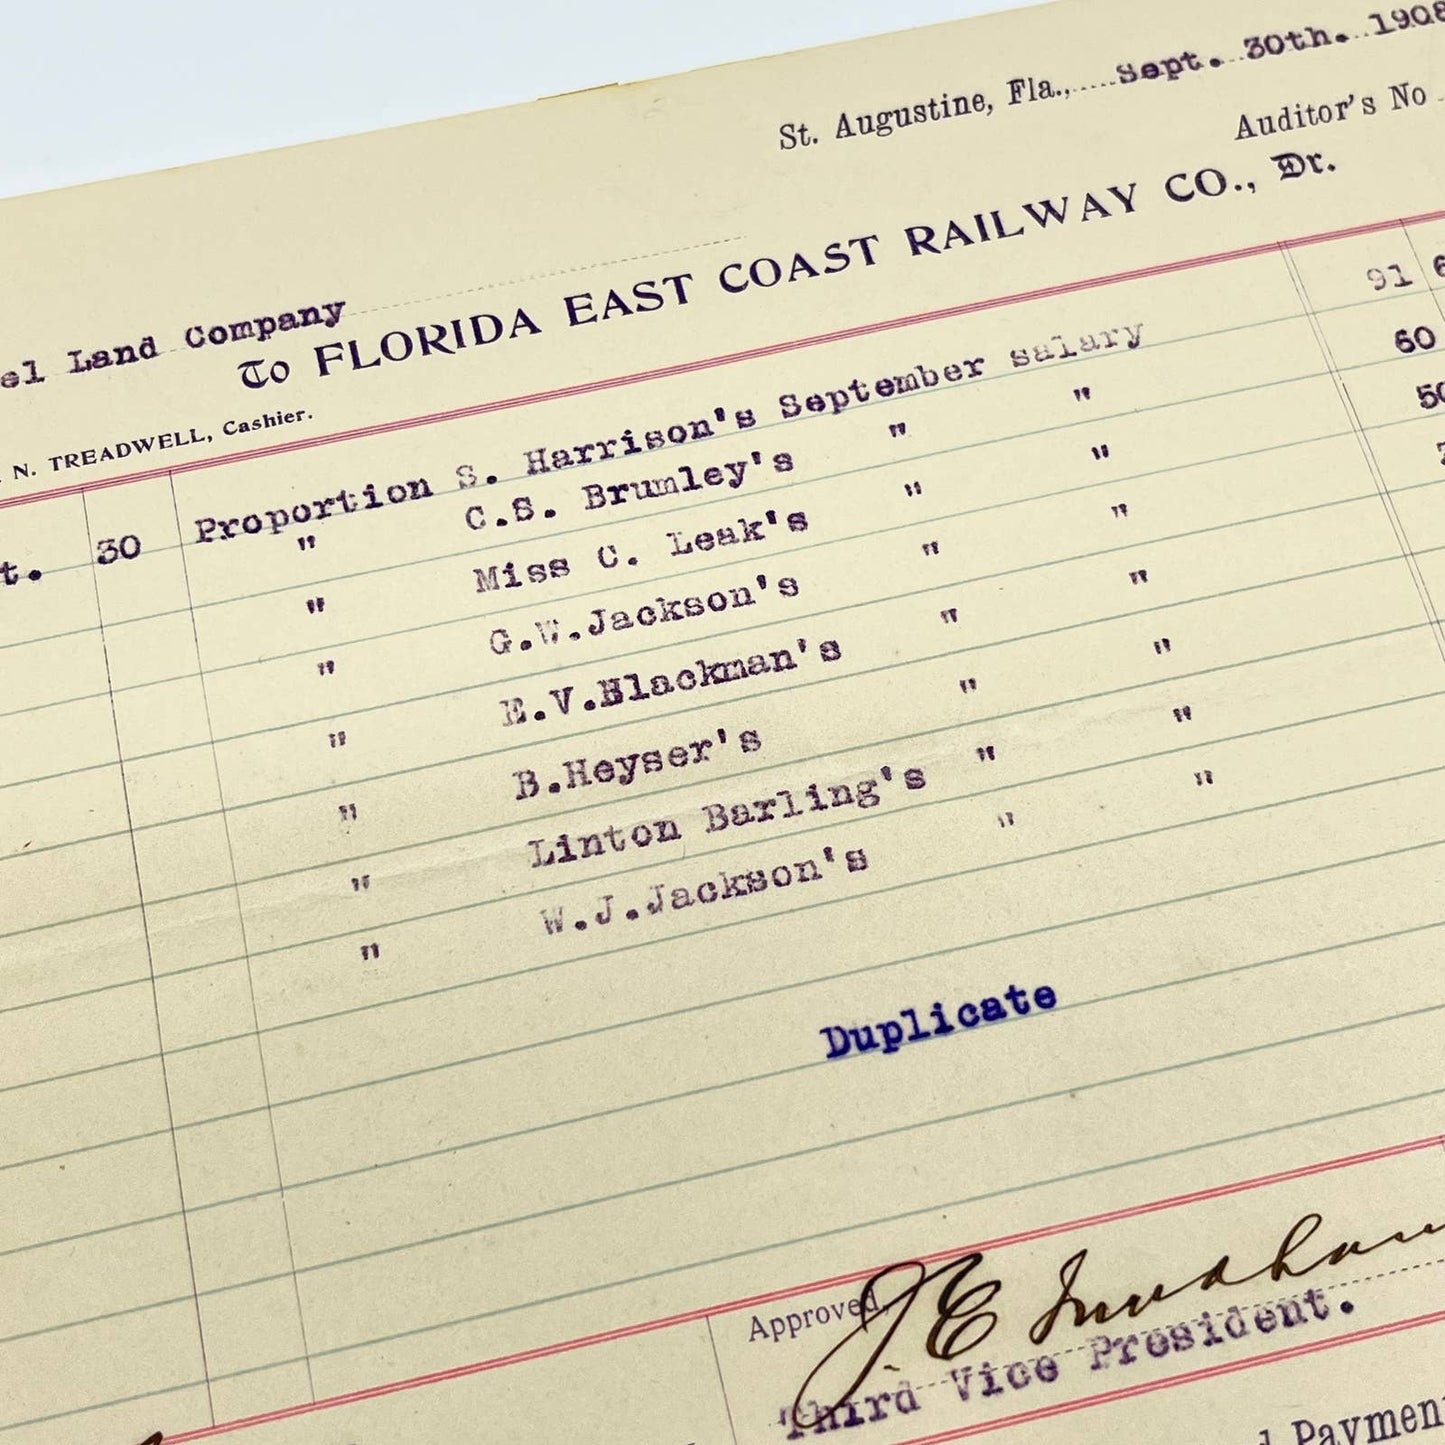 St. Augustine, Fla., Sept. 30th. 1908
Auditor's No
el Land Company
To FLORIDA EAST COAST RAILWAY CO., Dr.
N. TREADWELL, Cashier.
t. 30 Proportion S. Harrison's September salary 91 6
" C.S. Brumley's " " 60
" Miss C. Leak's " " 50
" G.W.Jackson's " "
" E.V.Blackman's " "
" B.Heyser's " "
" Linton Barling's " "
" W.J.Jackson's " "
Duplicate
Approved, J E
Third Vice President.
Paymen